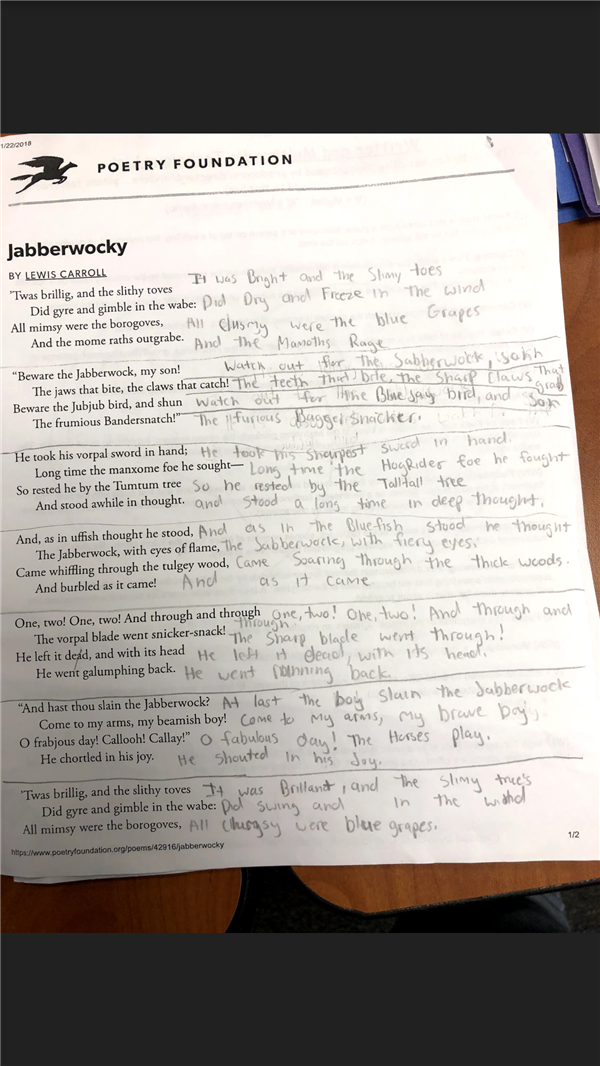 1/22/2018
POETRY FOUNDATION
Jabberwocky
BY LEWIS CARROLL
'Twas brillig, and the slithy toves It was Bright and the Slimy toes
Did gyre and gimble in the wabe: Did Dry and Freeze in the wind
All mimsy were the borogoves, All Clusmy were the blue Grapes
And the mome raths outgrabe. And the Mamoths Rage
“Beware the Jabberwock, my son! Watch out for the Jabberwock, sohn
The jaws that bite, the claws that catch! The teeth that bite, the sharp claws that grab
Beware the Jubjub bird, and shun Watch out for the Blue Jay bird, and
The frumious Bandersnatch!” The furious Bagger Snacker.
He took his vorpal sword in hand; He took his sharpest sword in hand.
Long time the manxome foe he sought— Long time the HogRider foe he fought
So rested he by the Tumtum tree So he rested by the Talltall tree
And stood awhile in thought. and stood a long time in deep thought.
And, as in uffish thought he stood, And as in the Blue-fish stood he thought
The Jabberwock, with eyes of flame, The Jabberwock, with fiery eyes.
Came whiffling through the tulgey wood, Came Soaring through the thick woods.
And burbled as it came! And as it came
One, two! One, two! And through and through One, two! One, two! And through and through.
The vorpal blade went snicker-snack! The sharp blade went through!
He left it dead, and with its head He left it dead, with its head.
He went galumphing back. He went running back.
“And hast thou slain the Jabberwock? At last the boy slain the Jabberwock
Come to my arms, my beamish boy! Come to my arms, my brave boy,
O frabjous day! Callooh! Callay!” O fabulous day! The Horses play.
He chortled in his joy. He shouted in his Joy.
'Twas brillig, and the slithy toves It was Brillant, and the slimy true's
Did gyre and gimble in the wabe: Did swing and in the
All mimsy were the borogoves, All were blue grapes.
https://www.poetryfoundation.org/poems/42916/jabberwocky
1/2